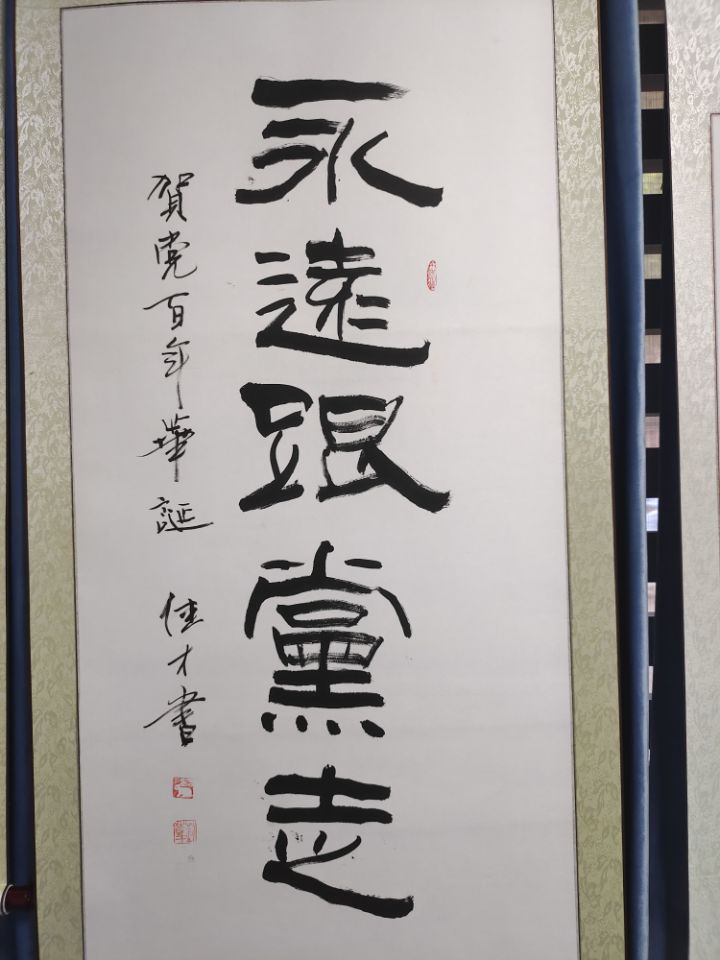 永遠跟黨走
賀党百年華誕 佳才書